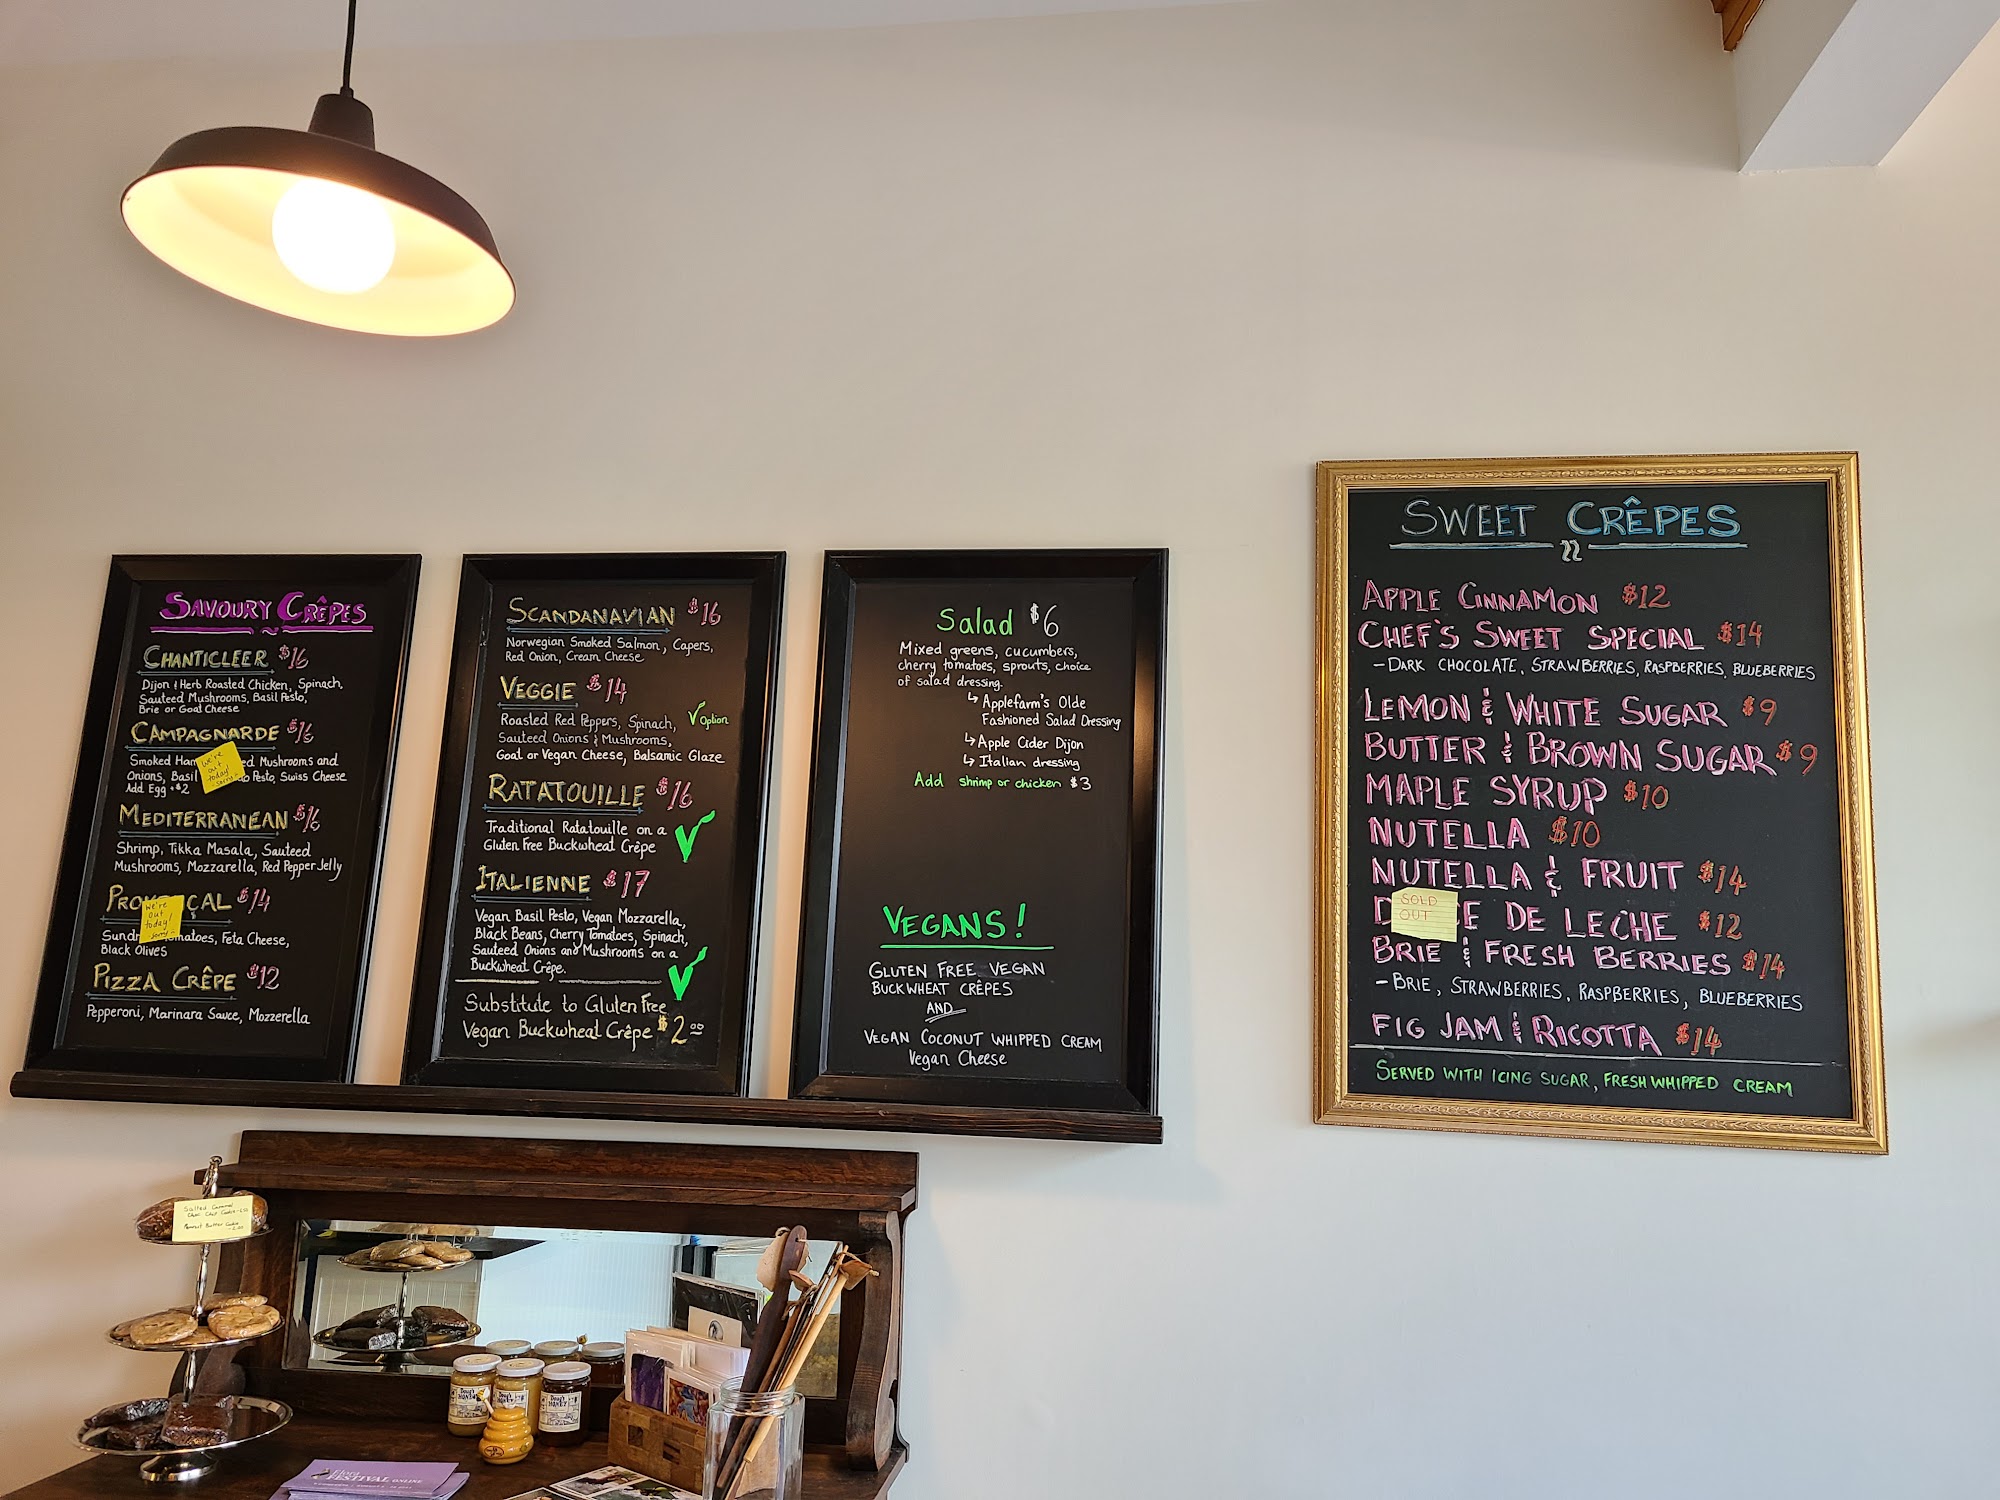 SAVOURY CRÊPES
CHANTICLEER $16
Dijon & Herb Roasted Chicken, Spinach,
Sauteed Mushrooms, Basil Pesto,
Brie or Goat Cheese
CAMPAGNARDE $16
Smoked Ham Mushrooms and
Onions, Basil Pesto, Swiss Cheese
Add Egg +$2
We're
out
today!
sorry
MEDITERRANEAN $16
Shrimp, Tikka Masala, Sauteed
Mushrooms, Mozzarella, Red Pepper Jelly
PROVENÇAL $14
We're
out
today!
sorry
Feta Cheese,
Black Olives
PIZZA CRÊPE $12
Pepperoni, Marinara Sauce, Mozzarella
SCANDANAVIAN $16
Norwegian Smoked Salmon, Capers,
Red Onion, Cream Cheese
VEGGIE $14
Roasted Red Peppers, Spinach, V Option
Sauteed Onions & Mushrooms,
Goat or Vegan Cheese, Balsamic Glaze
RATATOUILLE $16
Traditional Ratatouille on a
Gluten Free Buckwheat Crêpe
V
ITALIENNE $17
Vegan Basil Pesto, Vegan Mozzarella,
Black Beans, Cherry Tomatoes, Spinach,
Sauteed Onions and Mushrooms on a
Buckwheat Crêpe.
V
Substitute to Gluten Free
Vegan Buckwheat Crêpe $2.00
Salad $6
Mixed greens, cucumbers,
cherry tomatoes, sprouts, choice
of salad dressing.
↳ Applefarm's Olde
Fashioned Salad Dressing
↳ Apple Cider Dijon
↳ Italian dressing
Add shrimp or chicken $3
VEGANS!
GLUTEN FREE VEGAN
BUCKWHEAT CRÊPES
AND
VEGAN COCONUT WHIPPED CREAM
Vegan Cheese
SWEET CRÊPES
APPLE CINNAMON $12
CHEF'S SWEET SPECIAL $14
- DARK CHOCOLATE, STRAWBERRIES, RASPBERRIES, BLUEBERRIES
LEMON & WHITE SUGAR $9
BUTTER & BROWN SUGAR $9
MAPLE SYRUP $10
NUTELLA $10
NUTELLA & FRUIT $14
SOLD
OUT
DE LECHE $12
BRIE & FRESH BERRIES $14
- BRIE, STRAWBERRIES, RASPBERRIES, BLUEBERRIES
FIG JAM & RICOTTA $14
SERVED WITH ICING SUGAR, FRESH WHIPPED CREAM
Salted Caramel
Choc Chip Cookie
Peanut Butter Cookie
Doug's
HONEY
Doug's
HONEY
Doug's
HONEY
FESTIVAL ONLINE